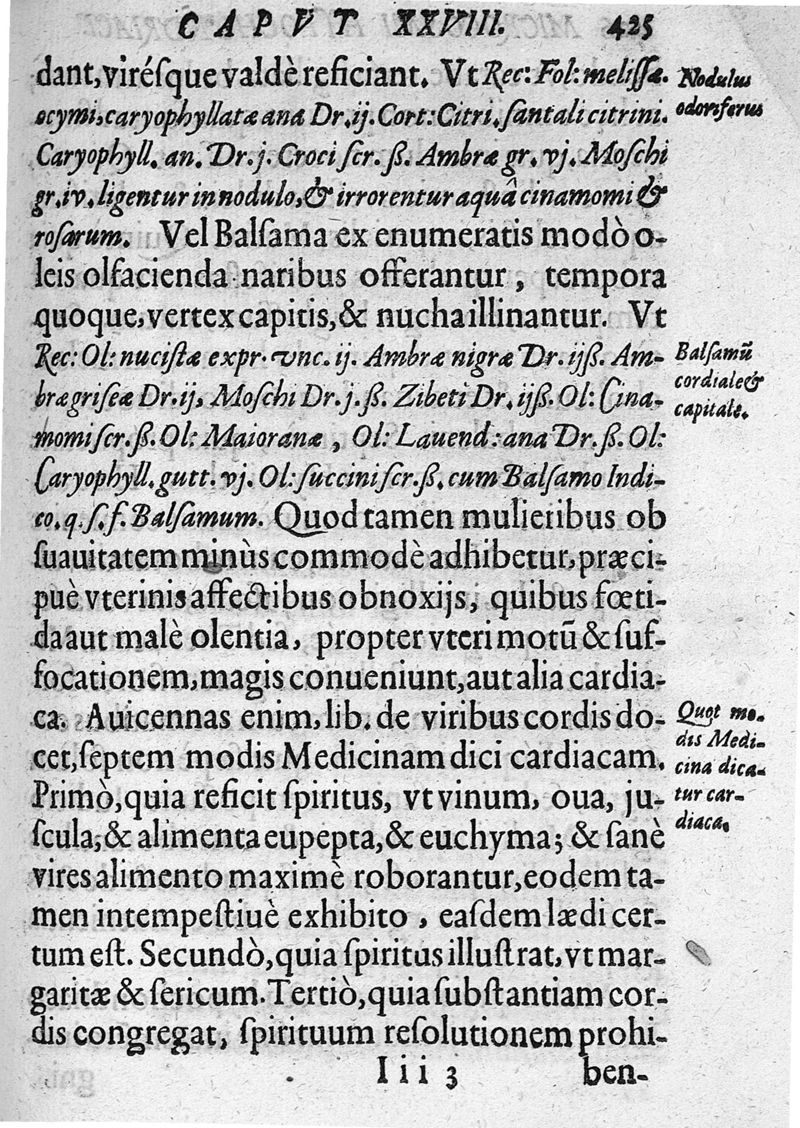 CAPVT XXVIII. 425
dant, virésque valdè reficiant. Vt Rec: Fol: melissæ.
ocymi, caryophyllatæ ana Dr. ij. Cort: Citri. santali citrini.
Caryophyll. an. Dr. j. Croci scr. ß. Ambræ gr. vj. Moschi
gr. iv. ligentur in nodulo, & irrorentur aquâ cinamomi &
rosarum. Vel Balsama ex enumeratis modò o-
leis olfacienda naribus offerantur, tempora
quoque, vertex capitis, & nucha illinantur. Vt
Rec: Ol: nucistæ expr. vnc. ij. Ambræ nigræ Dr. ijß. Am-
bræ griseæ Dr. ij, Moschi Dr. j. ß. Zibeti Dr. ijß. Ol: Cina-
momi scr. ß. Ol: Maioranæ, Ol: Lauend: ana Dr. ß. Ol:
Caryophyll. gutt. vj. Ol: succini scr. ß. cum Balsamo Indi-
co. q. s. f. Balsamum. Quod tamen mulieribus ob
suauitatem minùs commodè adhibetur, præci-
puè vterinis affectibus obnoxijs, quibus fœti-
da aut malè olentia, propter vteri motũ & suf-
focationem, magis conueniunt, aut alia cardia-
ca. Auicennas enim, lib. de viribus cordis do-
cet, septem modis Medicinam dici cardiacam.
Primò, quia reficit spiritus, vt vinum, oua, ju-
scula; & alimenta eupepta, & euchyma; & sanè
vires alimento maximè roborantur, eodem ta-
men intempestiuè exhibito, easdem lædi cer-
tum est. Secundò, quia spiritus illustrat, vt mar-
garitæ & sericum. Tertiò, quia substantiam cor-
dis congregat, spirituum resolutionem prohi-
Iii 3 ben-
Nodulus
odoriferus
Balsamũ
cordiale &
capitale.
Quot mo-
dis Medi-
cina dica-
tur car-
diaca.